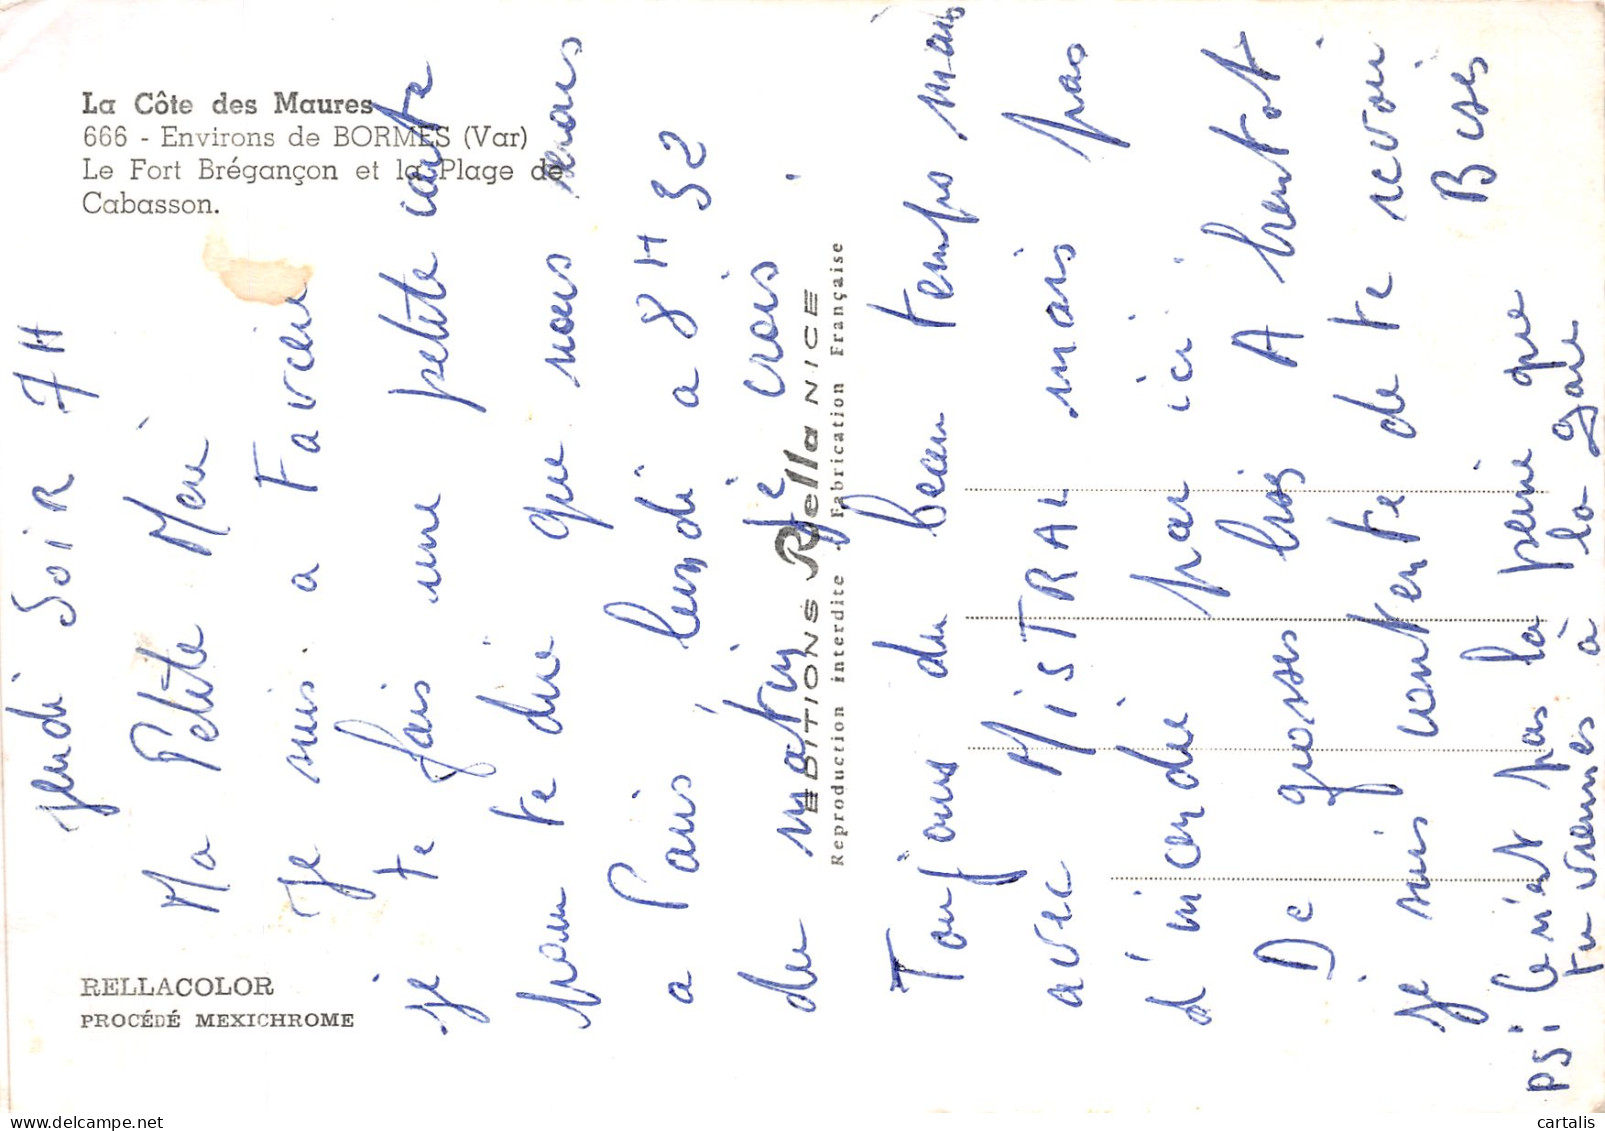 La Côte des Maures
666 - Environs de BORMES (Var)
Le Fort Brégançon et la Plage de
Cabasson.
RELLACOLOR
PROCÉDÉ MEXICHROME
EDITIONS Rella NICE
Reproduction interdite - Fabrication Française
jeudi SoiR 7H
Ma Petite Mère
Je suis a Favière
je te fais une petite carte
pour te dire que nous serons
a Paris, lundi a 8H32
du matin je crois.
Toujours du beau temps mais
avec MiSTRAL mais pas
d'incendie par ici
De grosses bises A bientot
je suis contente de te revoir
Bises
PS: Ce n'est pas la peine que
tu viennes à la gare
cartalis